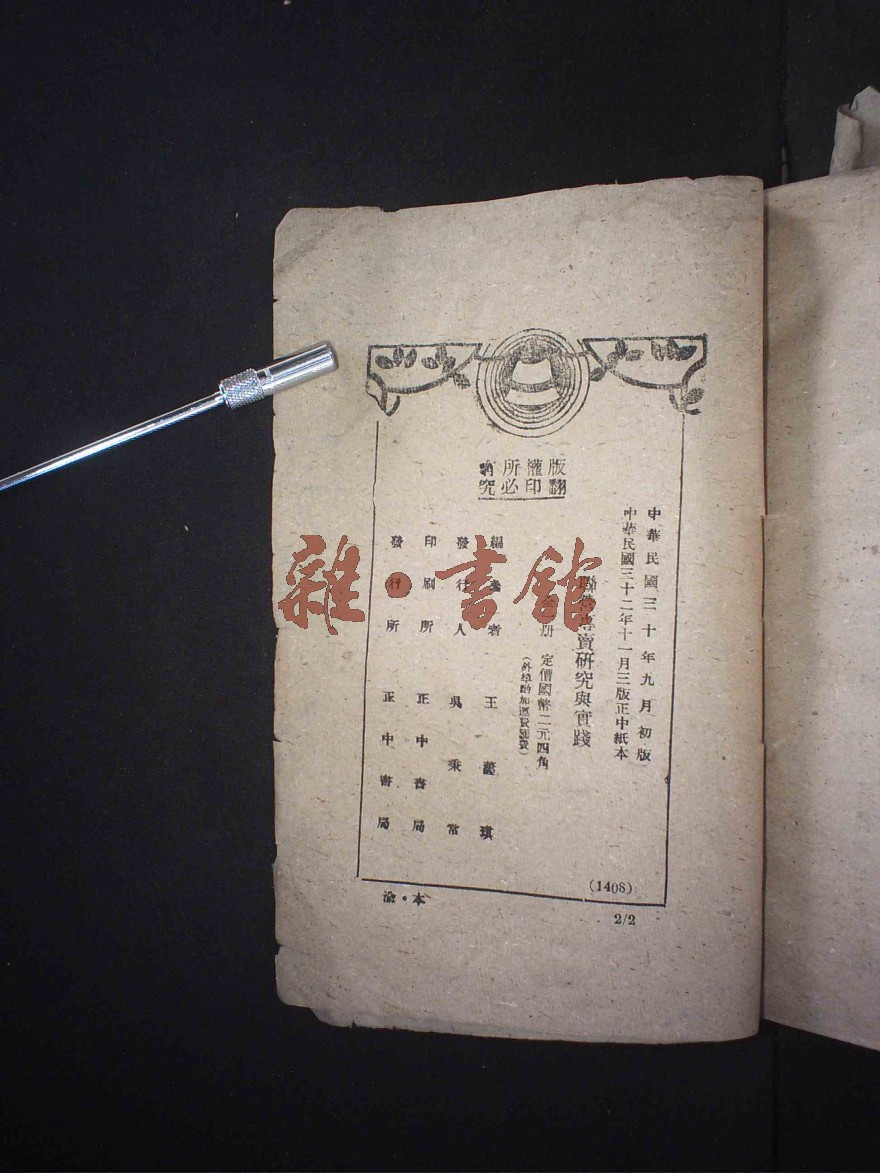 版權所有
翻印必究
中華民國三十年九月初版
中華民國三十二年十一月三版正中紙本
專賣研究與實踐
冊 定價國幣二元四角
(外埠酌加運費匯費)
編著者 王 琪
發行人 吳秉常
印刷所 正中書局
發行所 正中書局
(1408)
本・渝
2/2
雜・書館